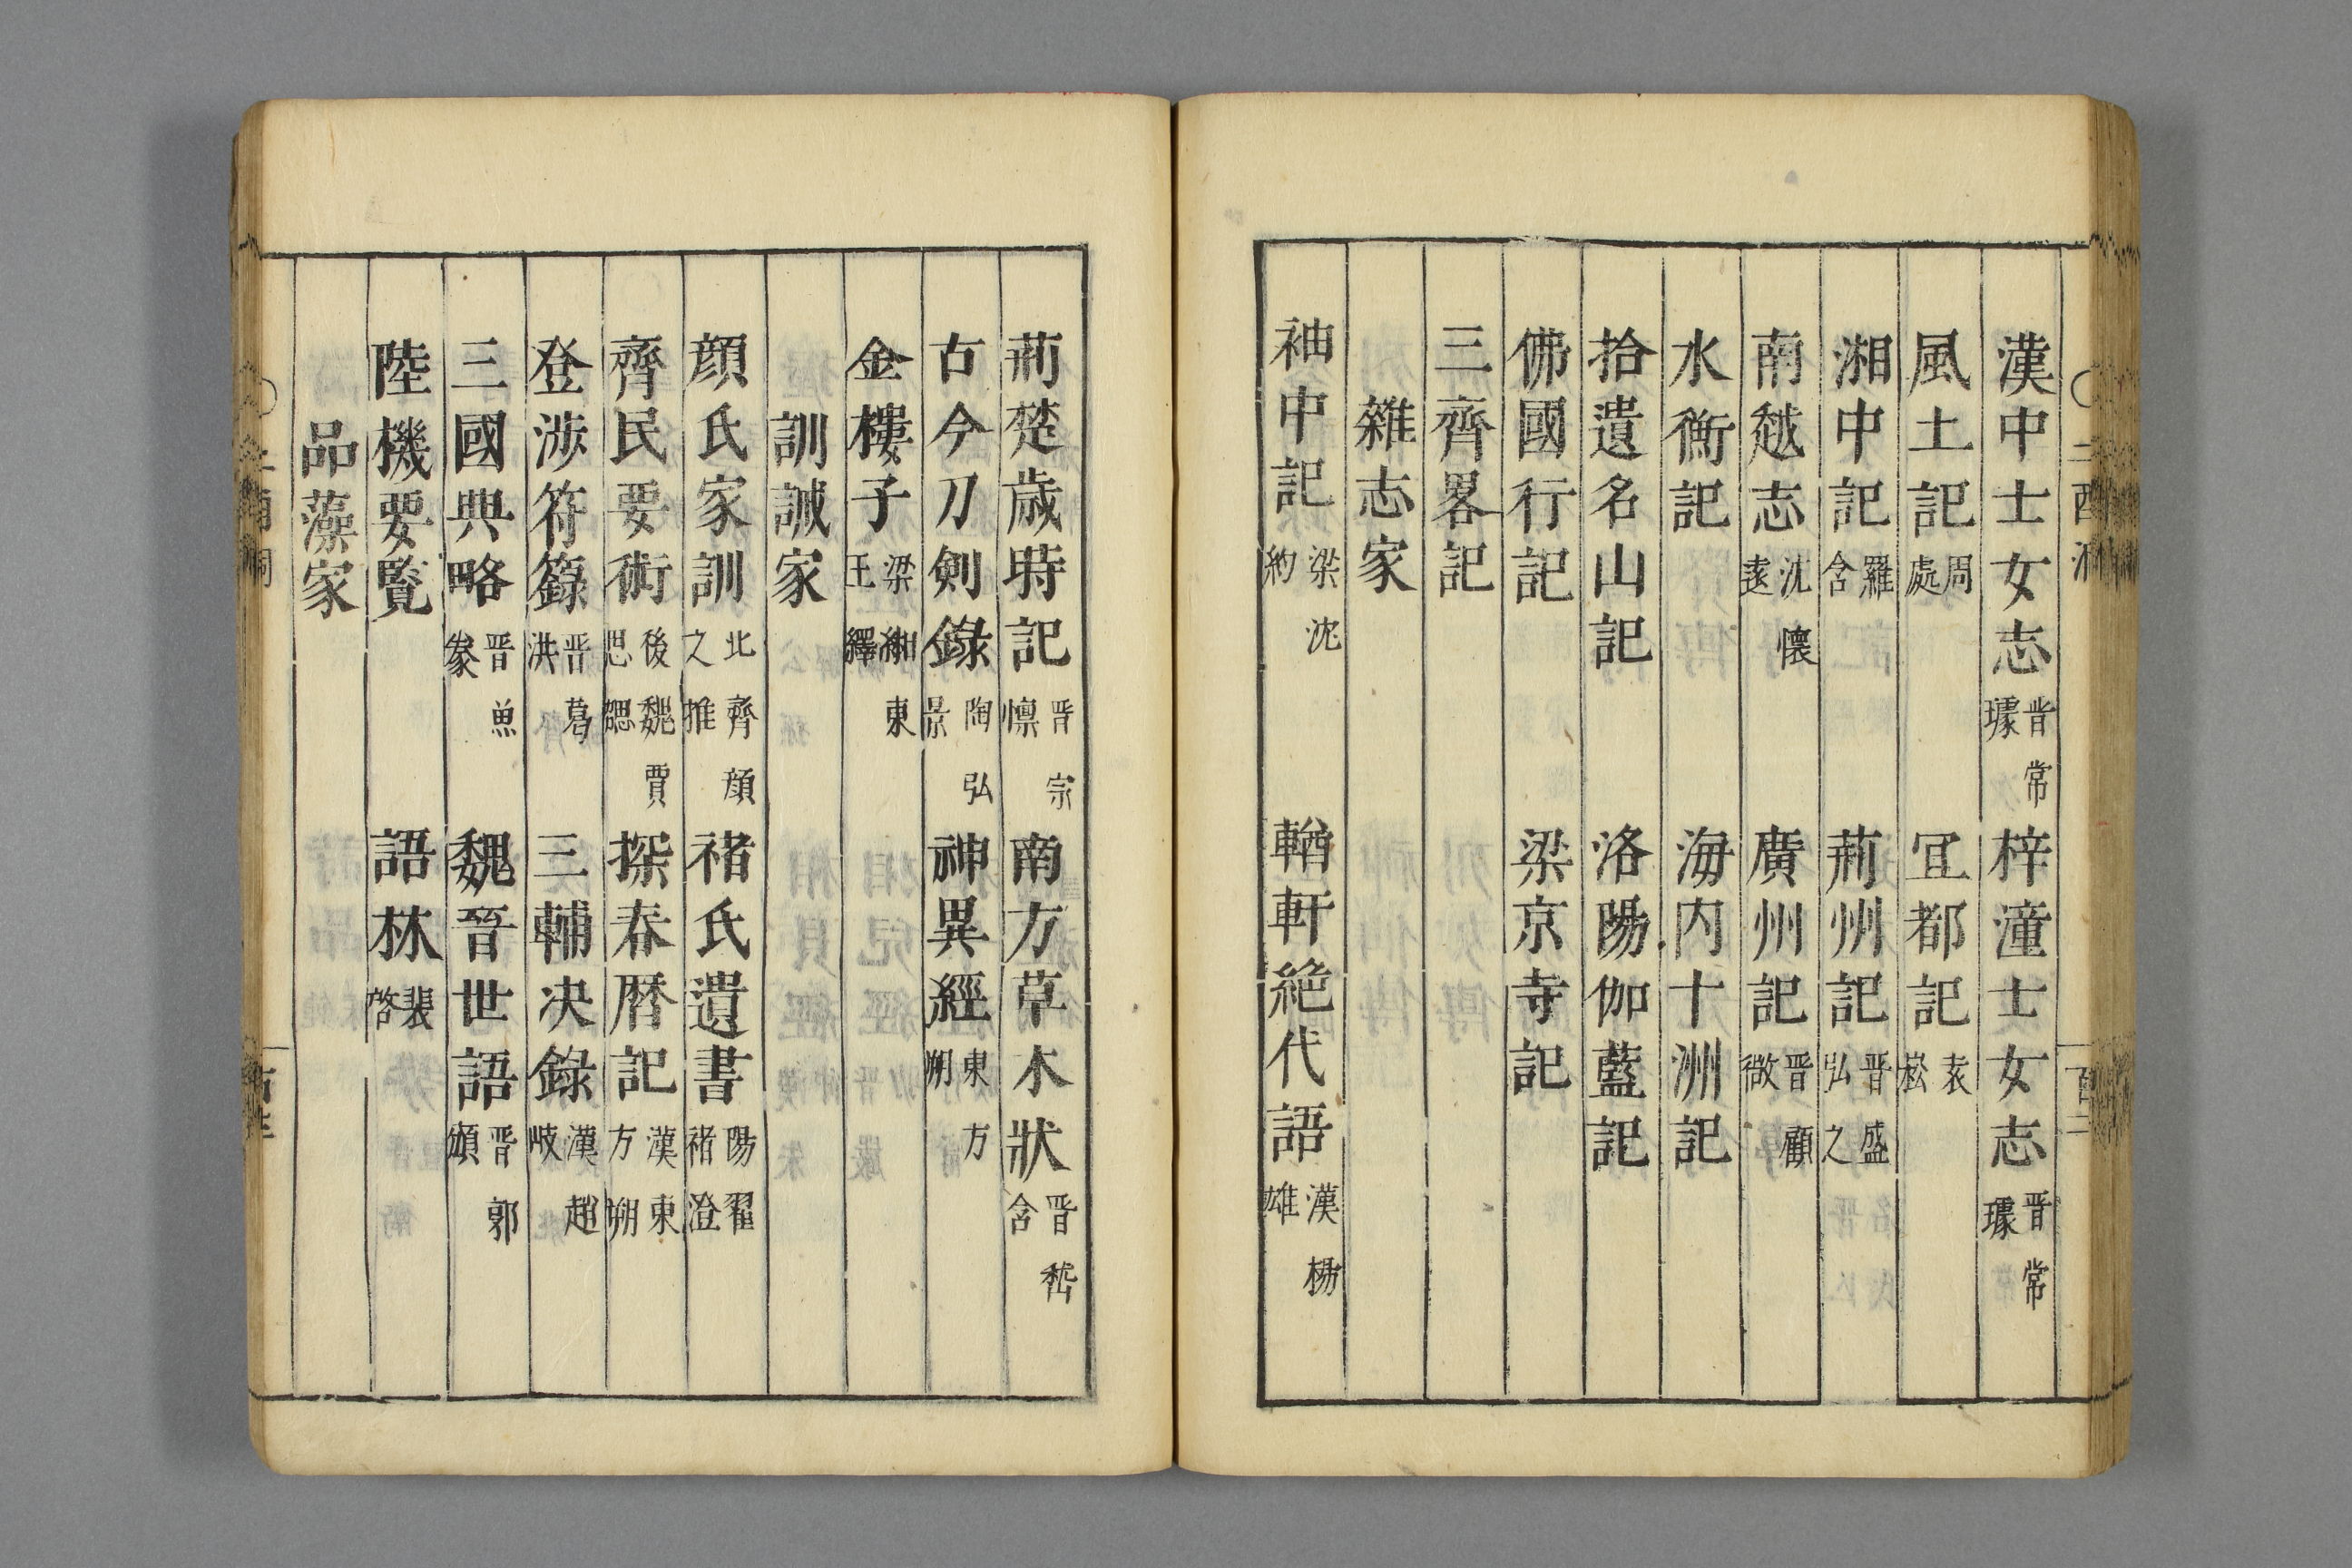 漢中士女志 晋常璩 梓潼士女志 晋常璩
風土記 周處 宜都記 袁崧
湘中記 羅含 荊州記 晋盛弘之
南越志 沈懷遠 廣州記 晋顧微
水衡記 海内十洲記
拾遺名山記 洛陽伽藍記
佛國行記 梁京寺記
三齊畧記
雜志家
袖中記 梁沈約 輶軒絶代語 漢楊雄
荊楚歲時記 晋宗懍 南方草木狀 晋嵇含
古今刀劍錄 陶弘景 神異經 東方朔
金樓子 梁湘東王繹
訓誡家
顔氏家訓 北齊顔之推 褚氏遺書 陽翟褚澄
齊民要術 後魏賈思勰 探春曆記 漢東方朔
登涉符籙 晋葛洪 三輔决錄 漢趙岐
三國典略 晋魚豢 魏晉世語 晋郭頒
陸機要覽 語林 裴啓
品藻家